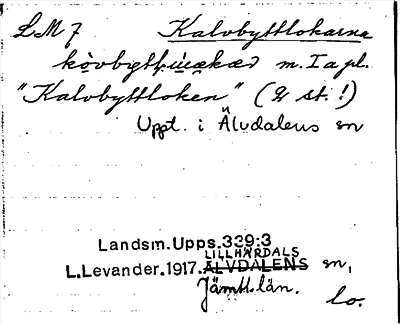 LM 7 Kalvbyttlokarna
m. I a pl.
"Kalvbyttloken" (2 st.!)
Uppt. i Älvdalens sn
Landsm. Upps. 339:3
LILLHÄRDALS
L. Levander. 1917. ÄLVDALENS sn,
Jämtl. län.
Lo.